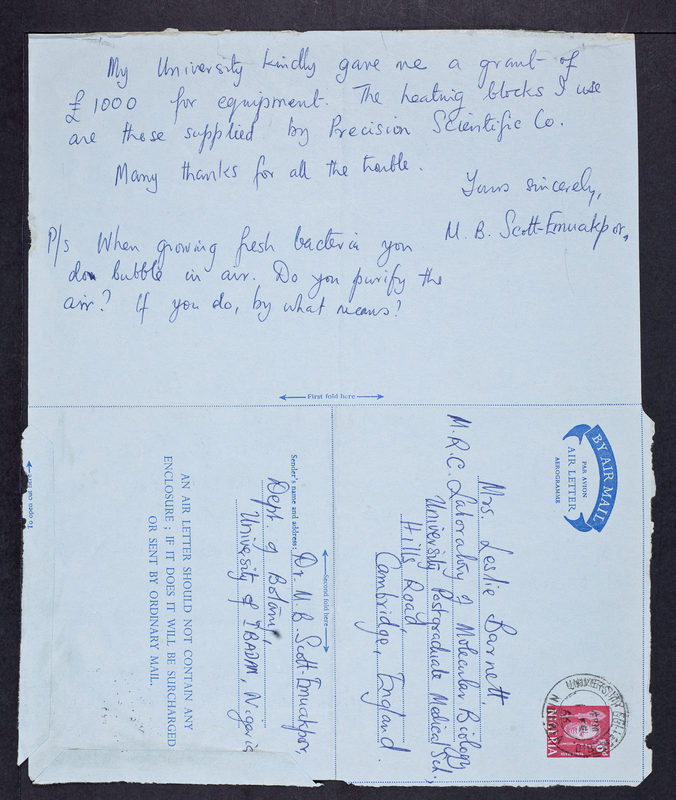 My University kindly gave me a grant of
£1000 for equipment. The heating blocks I use
are those supplied by Precision Scientific Co.
Many thanks for all the trouble.
Yours sincerely,
M. B. Scott-Emuakpor,
P/s When growing fresh bacteria you
do bubble in air. Do you purify the
air? If you do, by what means?
First fold here
BY AIR MAIL
PAR AVION
AIR LETTER
AEROGRAMME
NIGERIA
Mrs. Leslie Barnett,
M.R.C. Laboratory of Molecular Biology
University Postgraduate Medical Sch.,
Hills Road,
Cambridge, England.
Second fold here
Sender's name and address:
Dr. M. B. Scott-Emuakpor,
Dept. of Botany,
University of IBADAN, Nigeria
AN AIR LETTER SHOULD NOT CONTAIN ANY
ENCLOSURE ; IF IT DOES IT WILL BE SURCHARGED
OR SENT BY ORDINARY MAIL.
To open cut here